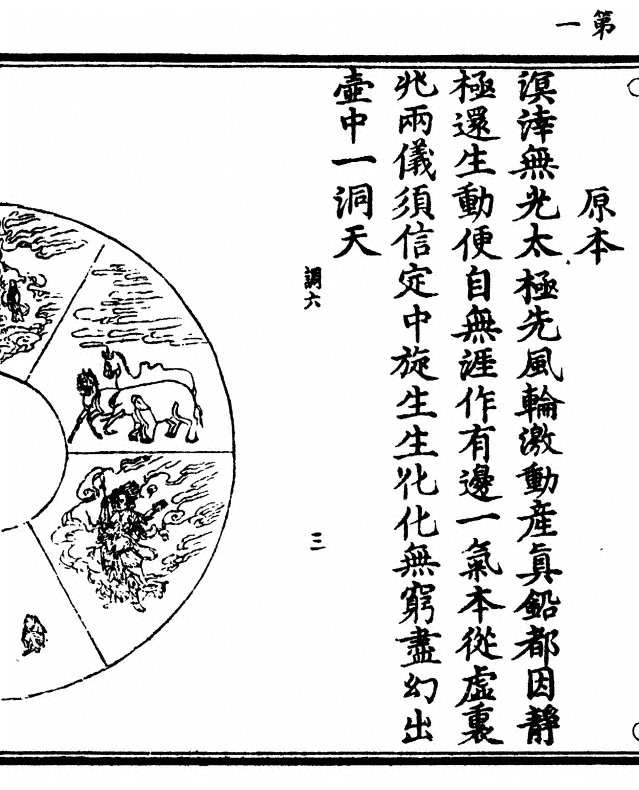 第一
原本
溟涬無光太極先風輪激動產真鉛都因靜
極還生動便自無涯作有邊一氣本從虛裏
兆兩儀須信定中旋生生化化無窮盡幻出
壺中一洞天
調六
三